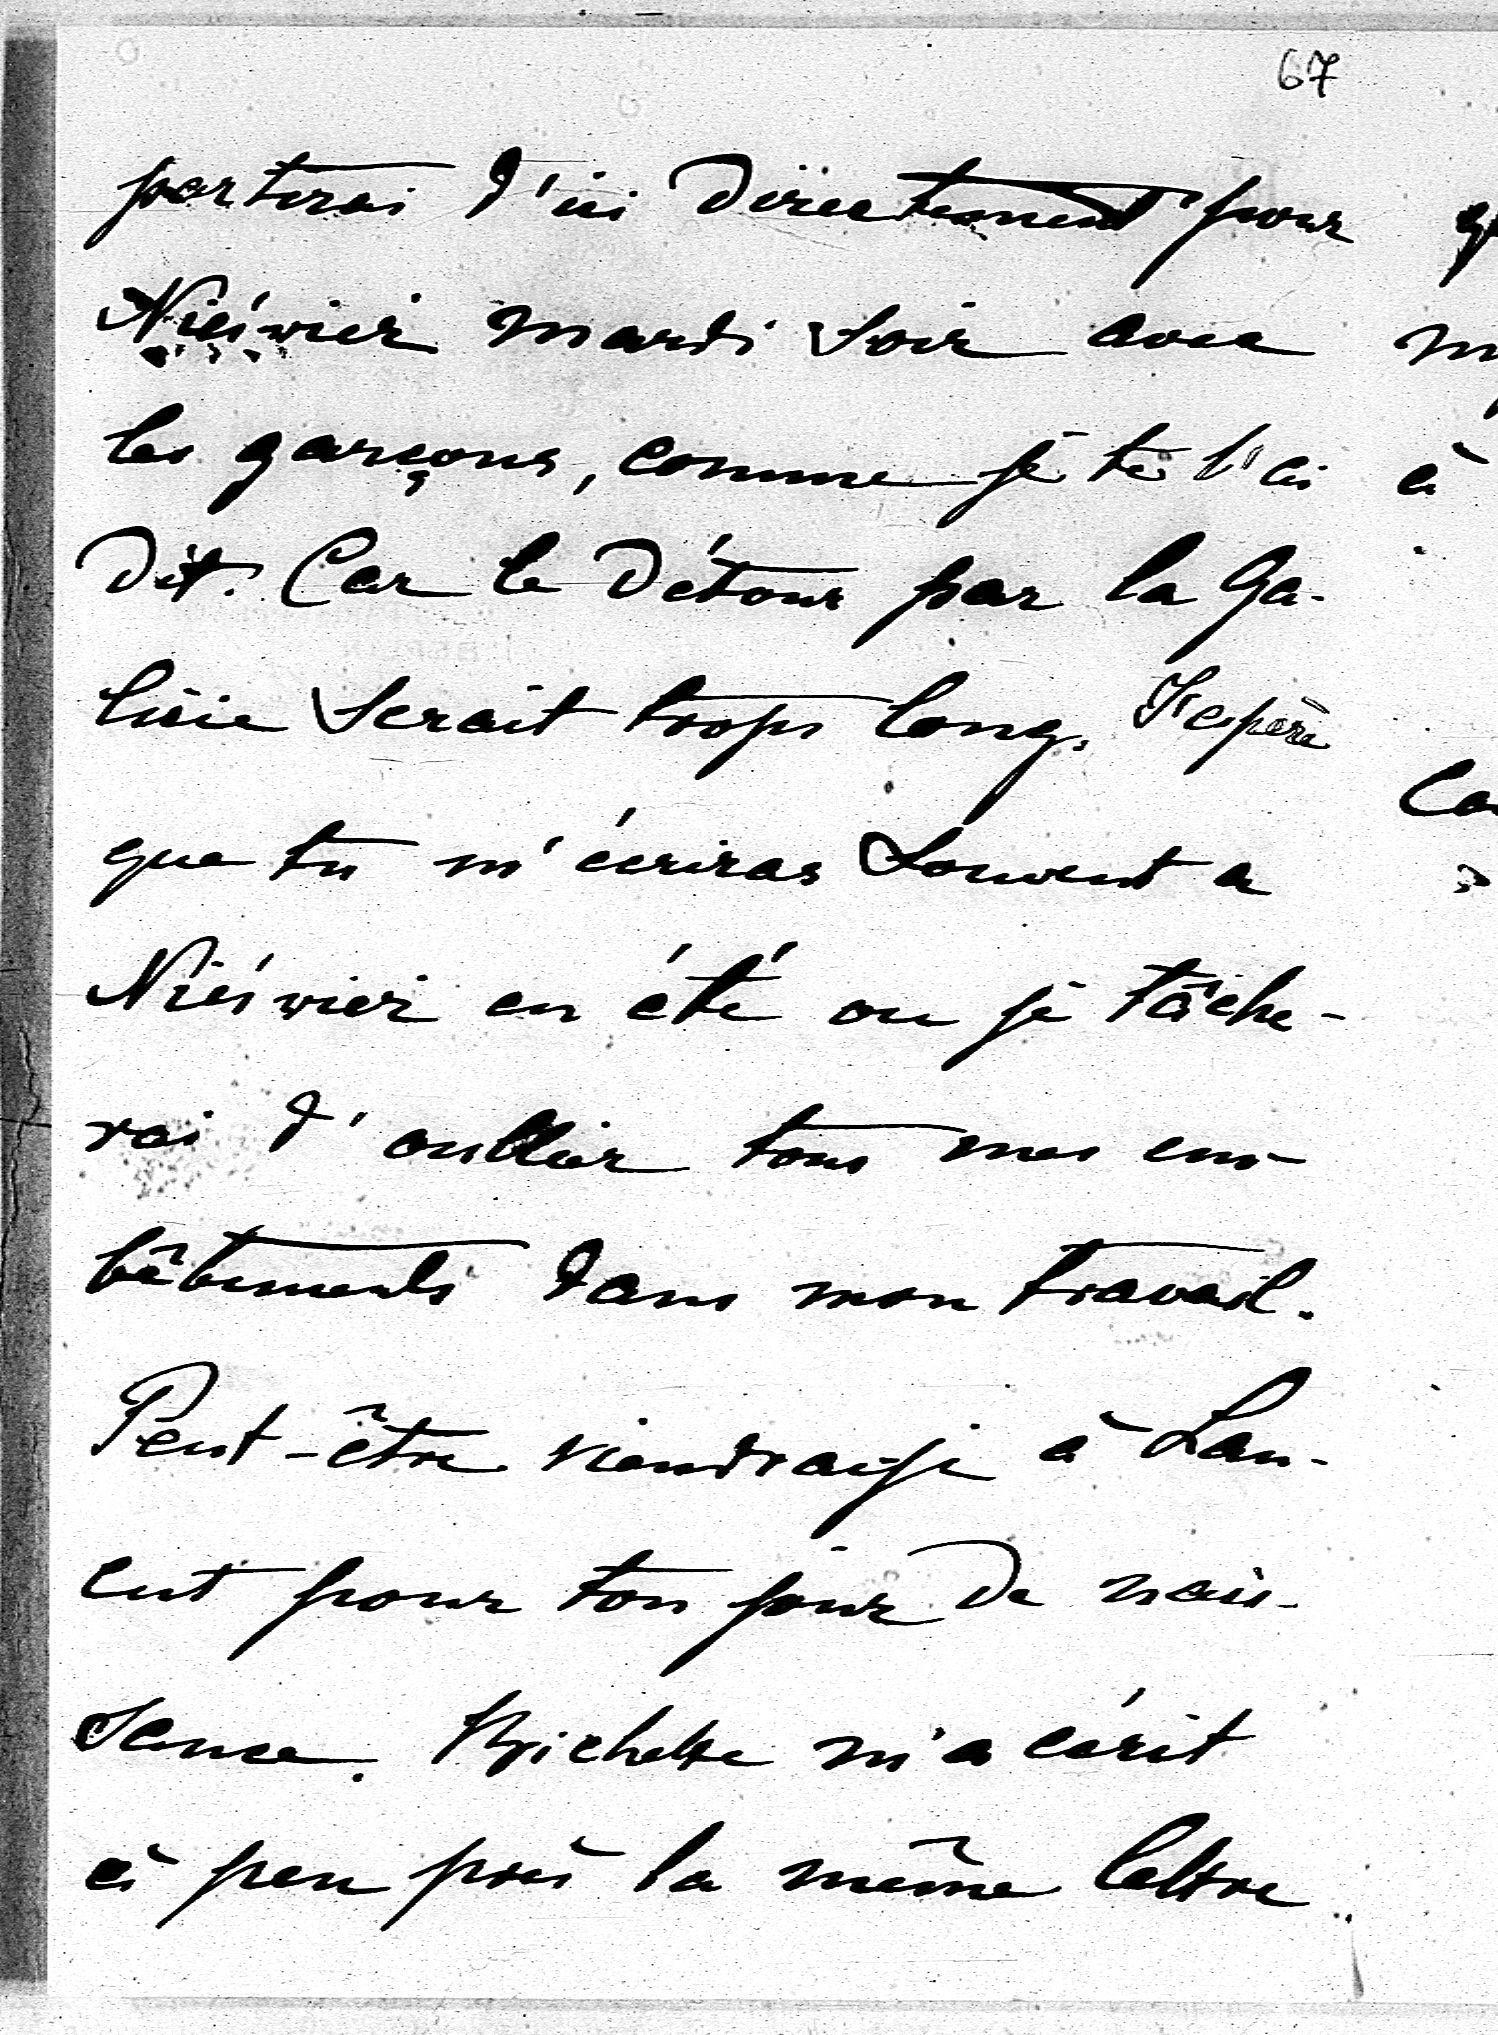 67
partirai d'ici directement pour
Nieśwież mardi soir avec
les garçons, comme je te l'ai
dit. Car le détour par la Ga-
licie serait trops long. J'espère
que tu m'écriras souvent a
Nieśwież en été ou je tâche-
rai d'oublier tous mes em-
bêtements dans mon travail.
Peut-être viendrai-je à Lan-
cut pour ton jour de nais-
sance. Bichette m'a écrit
à peu près la même lettre